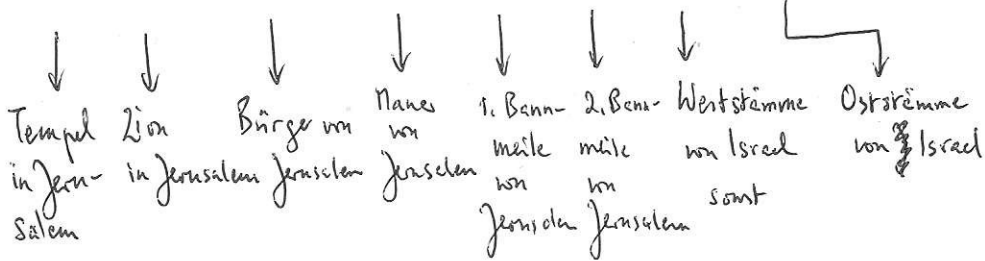 Tempel
in Jeru-
salem
Zion
in Jerusalem
Bürger von
Jerusalem
Mauer
von
Jerusalem
1. Bann-
meile
von
Jerusalem
2. Bann-
meile
von
Jerusalem
Weststämme
von Israel
sonst
Oststämme
von Israel